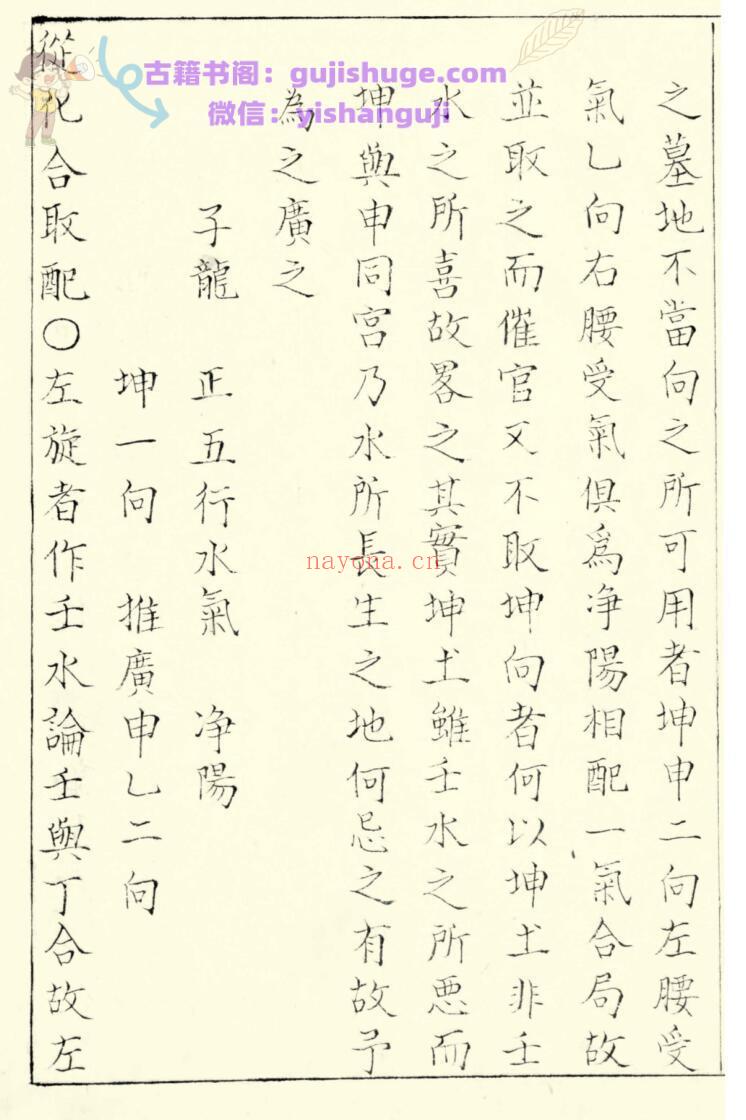 之墓地不當向之所可用者坤申二向左腰受
氣乚向右腰受氣俱爲净陽相配一氣合局故
並取之而催官又不取坤向者何以坤土非壬
水之所喜故畧之其實坤土雖壬水之所惡而
坤與申同宫乃水所長生之地何忌之有故予
為之廣之
子龍 正五行水氣 净陽
坤一向 推廣申乚二向
從化合取配〇左旋者作壬水論壬與丁合故左
古籍书阁：gujishuge.com
微信：yishanguji
nayona.cn